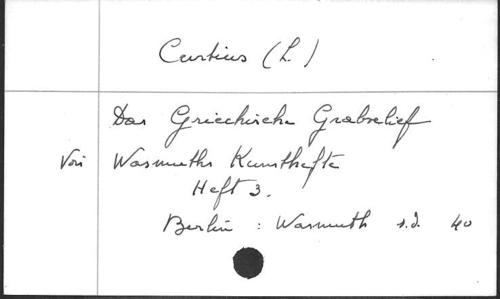 Curtius (L.)
Das Griechische Grabrelief
Voir Wasmuths Kunsthefte
Heft 3.
Berlin : Wasmuth s.d. 40